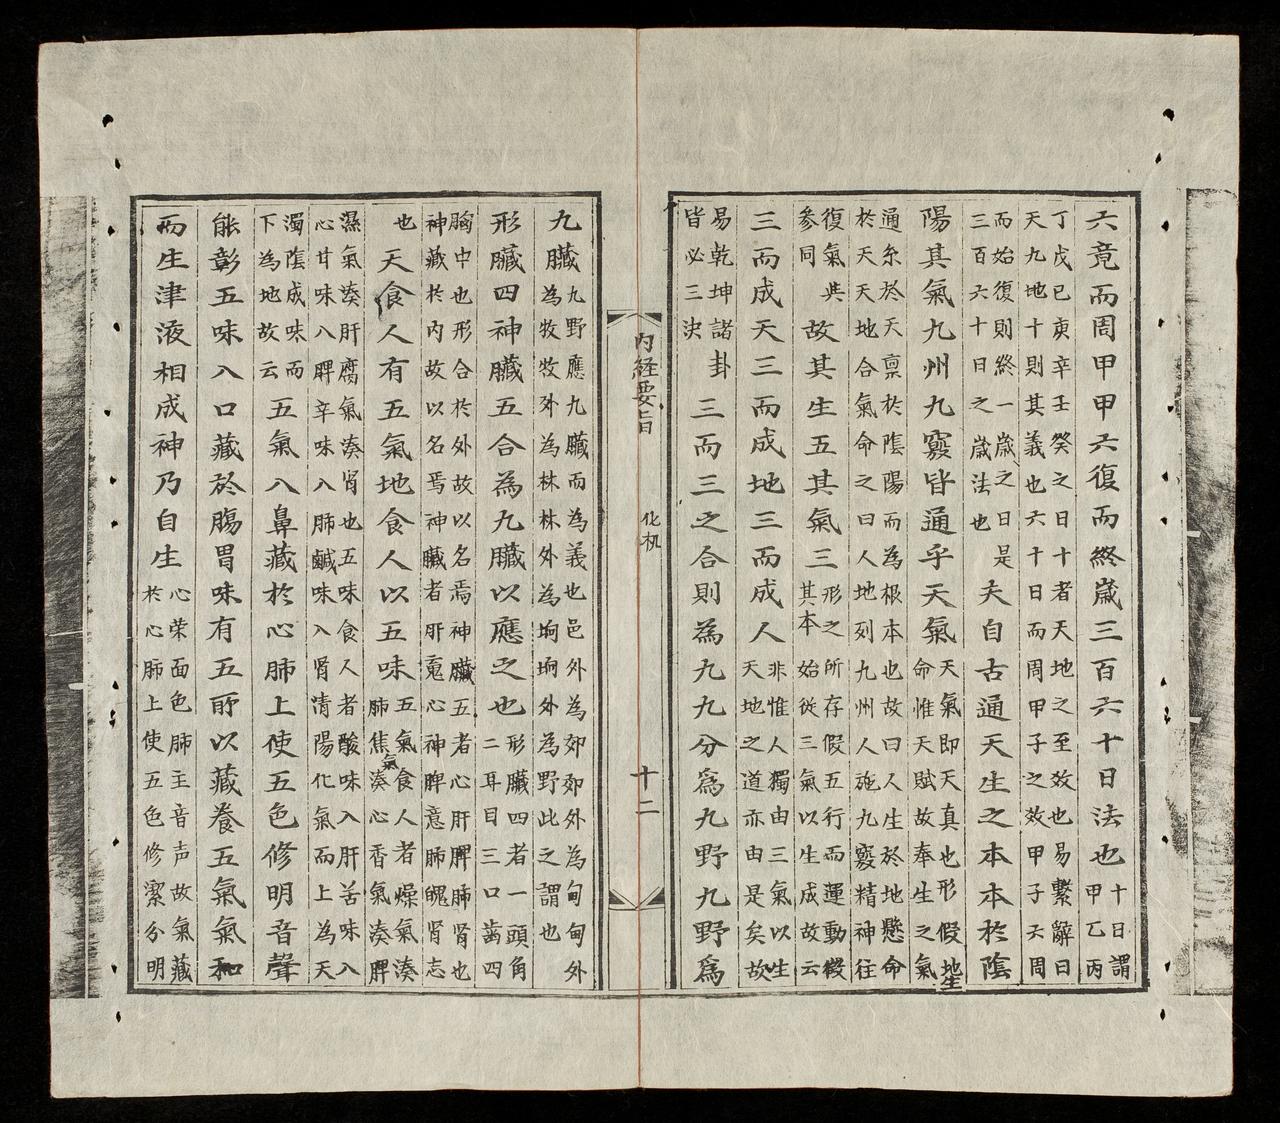 六竟而周甲甲六復而終歲三百六十日法也
十日謂
甲乙丙
丁戊己庚辛壬癸之日十者天地之至效也易繫辭曰
天九地十則其義也六十日而周甲子之效甲子六周
而始復則終一歲之日是
三百六十日之歲法也
夫自古通天生之本本於陰
陽其氣九州九竅皆通乎天氣
天氣即天真也形假地生
命惟天賦故奉生之氣
通糸於天稟於陰陽而為根本也故曰人生於地懸命
於天天地合氣命之曰人地列九州人施九竅精神往
復氣共
參同
故其生五其氣三
形之所存假五行而運動假
其本始從三氣以生成故云
三而成天三而成地三而成人
非惟人獨由三氣以生
天地之道亦由是矣故
易乾坤諸卦
皆必三决
三而三之合則為九九分爲九野九野爲
内経要旨
化机
十二
九臟
九野應九臟而為義也邑外為郊郊外為甸甸外
為牧牧外為林林外為坰坰外為野此之謂也
形臟四神臟五合為九臟以應之也
形臟四者一頭角
二耳目三口齒四
胸中也形合於外故以名焉神臟五者心肝脾肺腎也
神藏於内故以名焉神臟者肝䰟心神脾意肺魄腎志
也
天食人有五氣地食人以五味
五氣食人者燥氣湊
肺焦氣湊心香氣湊脾
濕氣湊肝腐氣湊腎也五味食人者酸味入肝苦味入
心甘味入脾辛味入肺鹹味入腎清陽化氣而上為天
濁陰成味而
下為地故云
五氣入鼻藏於心肺上使五色修明音聲
能彰五味入口藏於腸胃味有五所以藏養五氣氣和
而生津液相成神乃自生
心荣面色肺主音声故氣藏
於心肺上使五色修潔分明